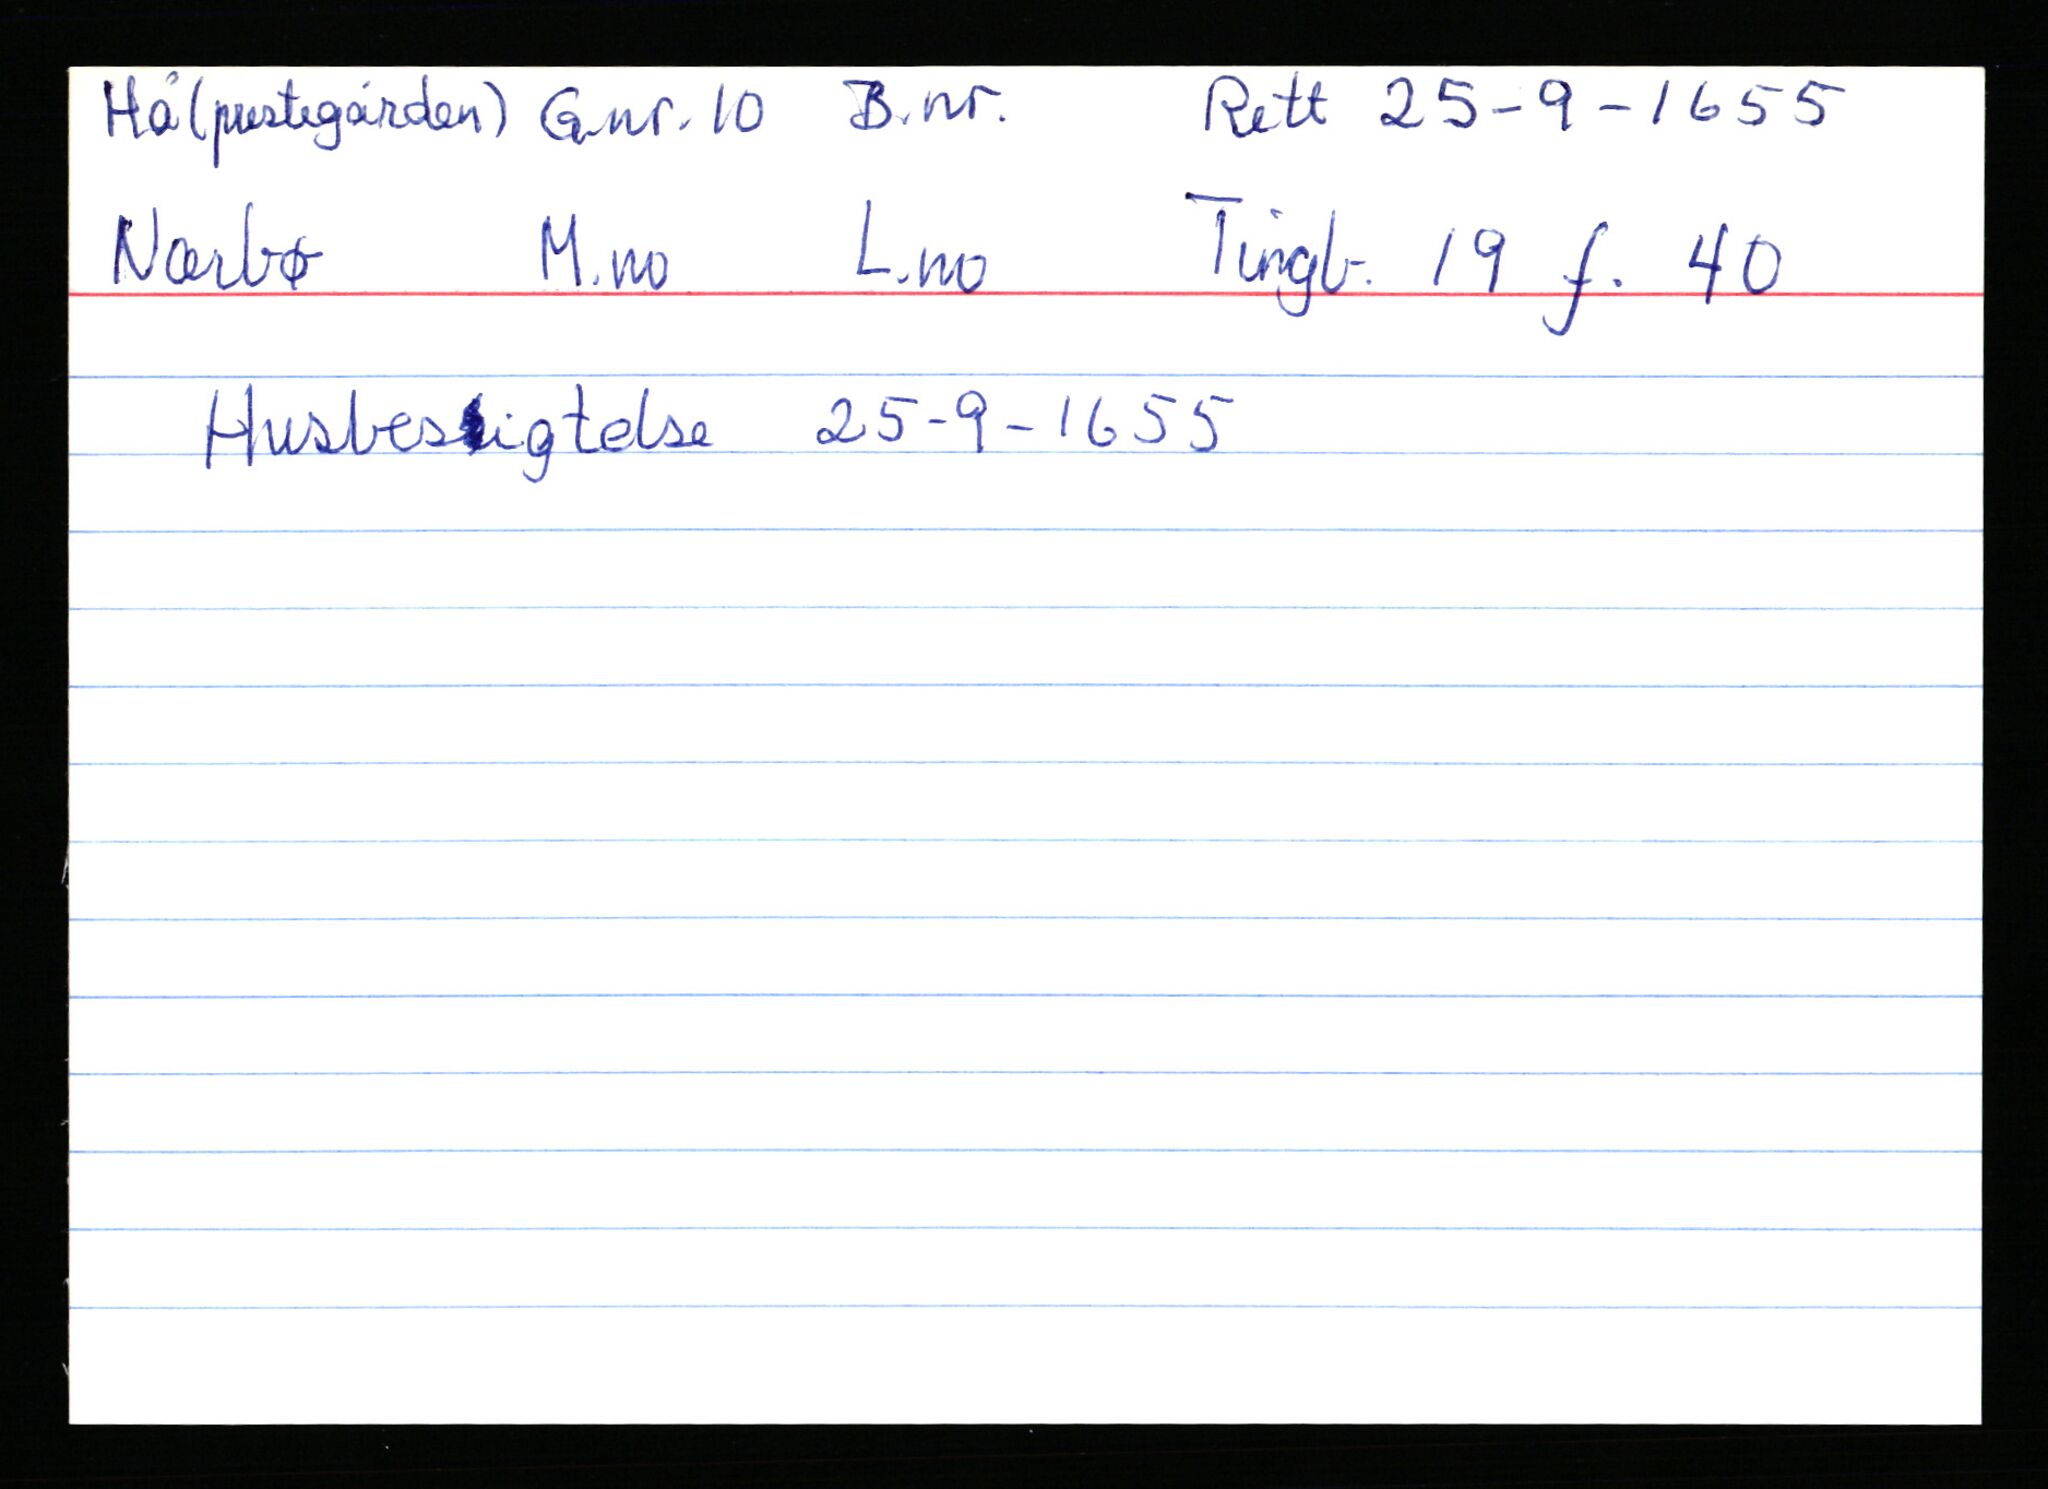 Hå (prestegården) G.nr. 10 B.nr. Rett 25-9-1655
Nærbø M.no L.no Tingb. 19 f. 40
Husbesigtelse 25-9-1655